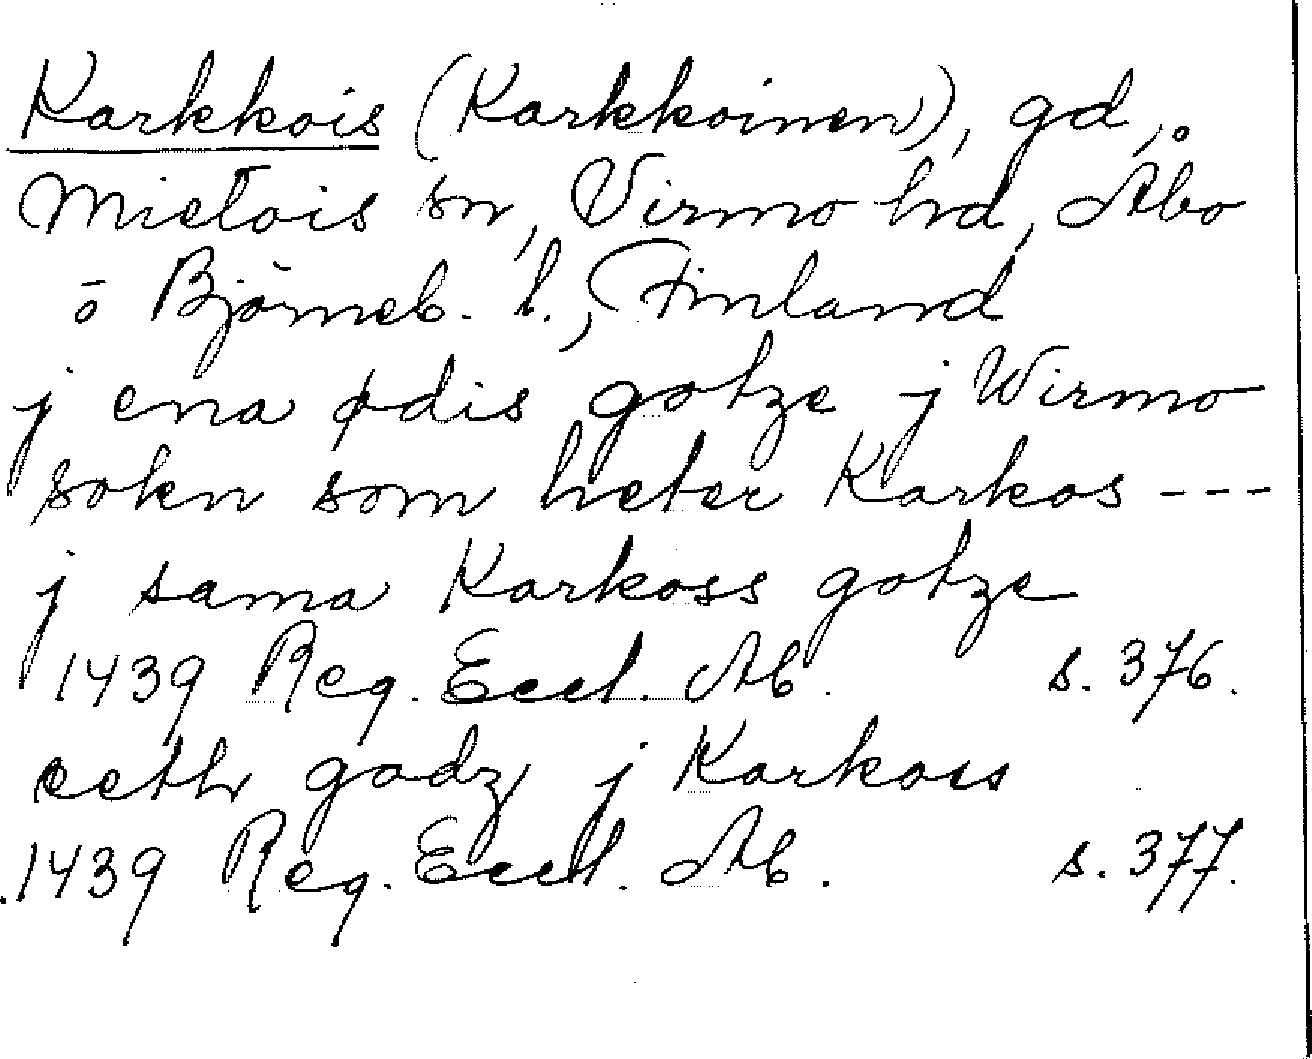 Karkkois (Karkkoinen), gd,
Mietois sn, Virmo hd, Åbo
o Björneb. l., Finland
j ena ødis gotze j Wirmo
sokn som heter Karkos ---
j sama Karkoss gotze
1439 Reg. Eccl. Ab. s. 376.
eeth godz j Karkoss
1439 Reg. Eccl. Ab. s. 377.